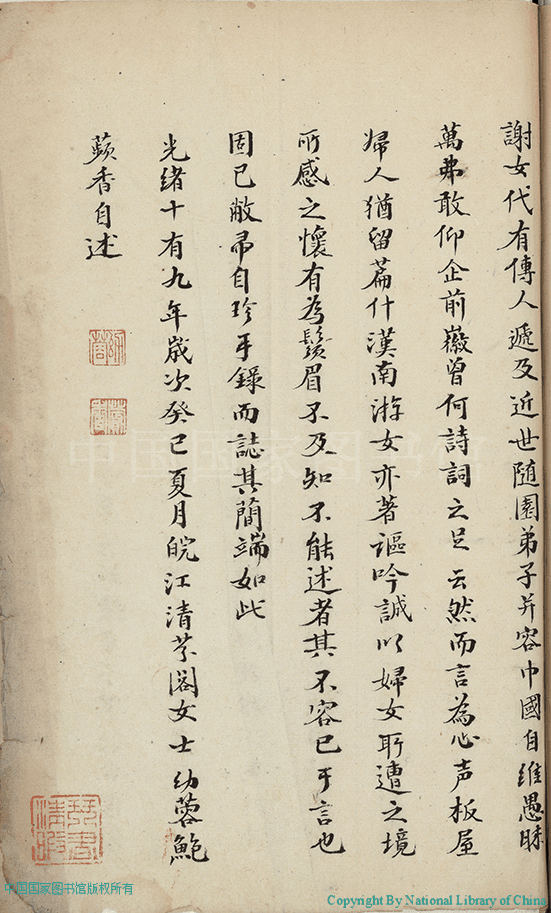 謝女代有傳人遞及近世随園弟子并容巾幗自維愚昧
萬弗敢仰企前徽曾何詩詞之足云然而言為心声板屋
婦人猶留篇什漢南游女亦著謳吟誠以婦女所遭之境
所感之懷有為鬚眉不及知不能述者其不容已于言也
固已敝帚自珍手錄而誌其簡端如此
光緒十有九年歲次癸巳夏月皖江清芬閣女士幼蓉鮑
蘋香自述
中国国家图书馆
中国国家图书馆版权所有
Copyright By National Library of China